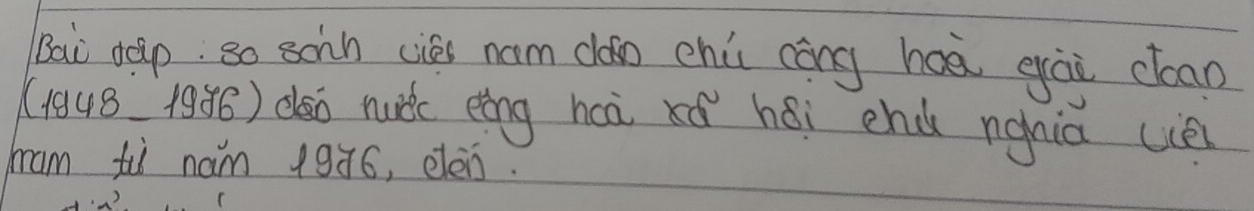 Bài tập : so sánh việt nam dân chủ cộng hoà giai đoạn
(1948 _ 1976) đến nước cộng hoà xã hội chủ nghĩa việt
nam từ năm 1976, đến.